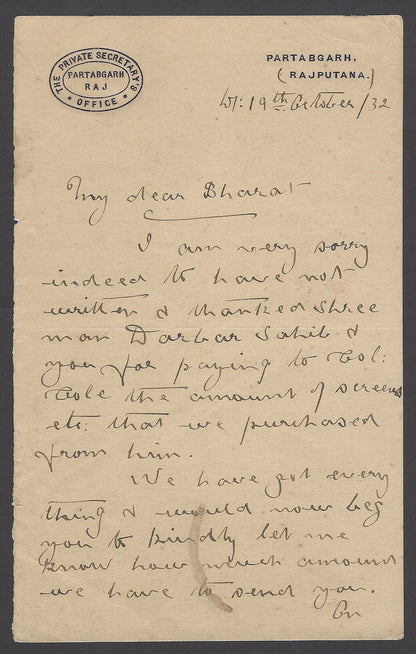 THE PRIVATE SECRETARY'S OFFICE
PARTABGARH
RAJ
PARTABGARH,
(RAJPUTANA.)
Dt: 19th October/32
My dear Bharat
I am very sorry
indeed to have not
written & thanked Shree
man Darbar Sahib &
you for paying to Col:
Cole the amount of screens
etc. that we purchased
from him.
We have got every
thing & would now beg
you to kindly let me
know how much amount
we have to send you.
On